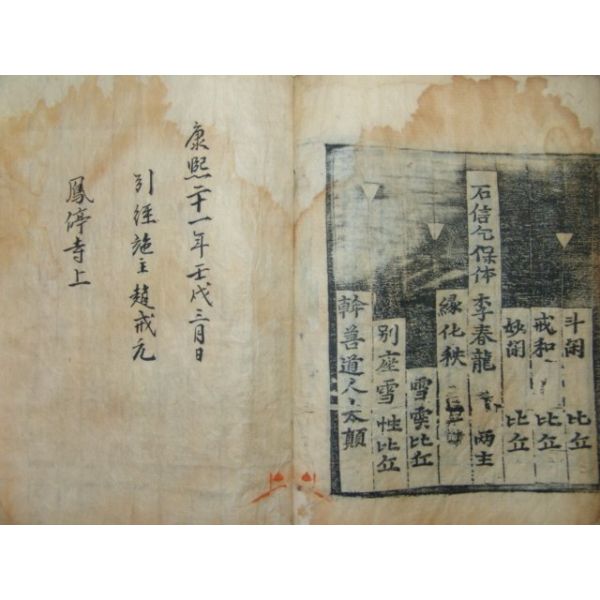 斗閑 比丘
戒和 比丘
妙閑 比丘
石信乞保体 李春龍 兩主
緣化秩
雪雲比丘
别座雪性比丘
幹善道人太顛
康熙二十一年壬戌三月日
引經施主趙戒元
鳳停寺上